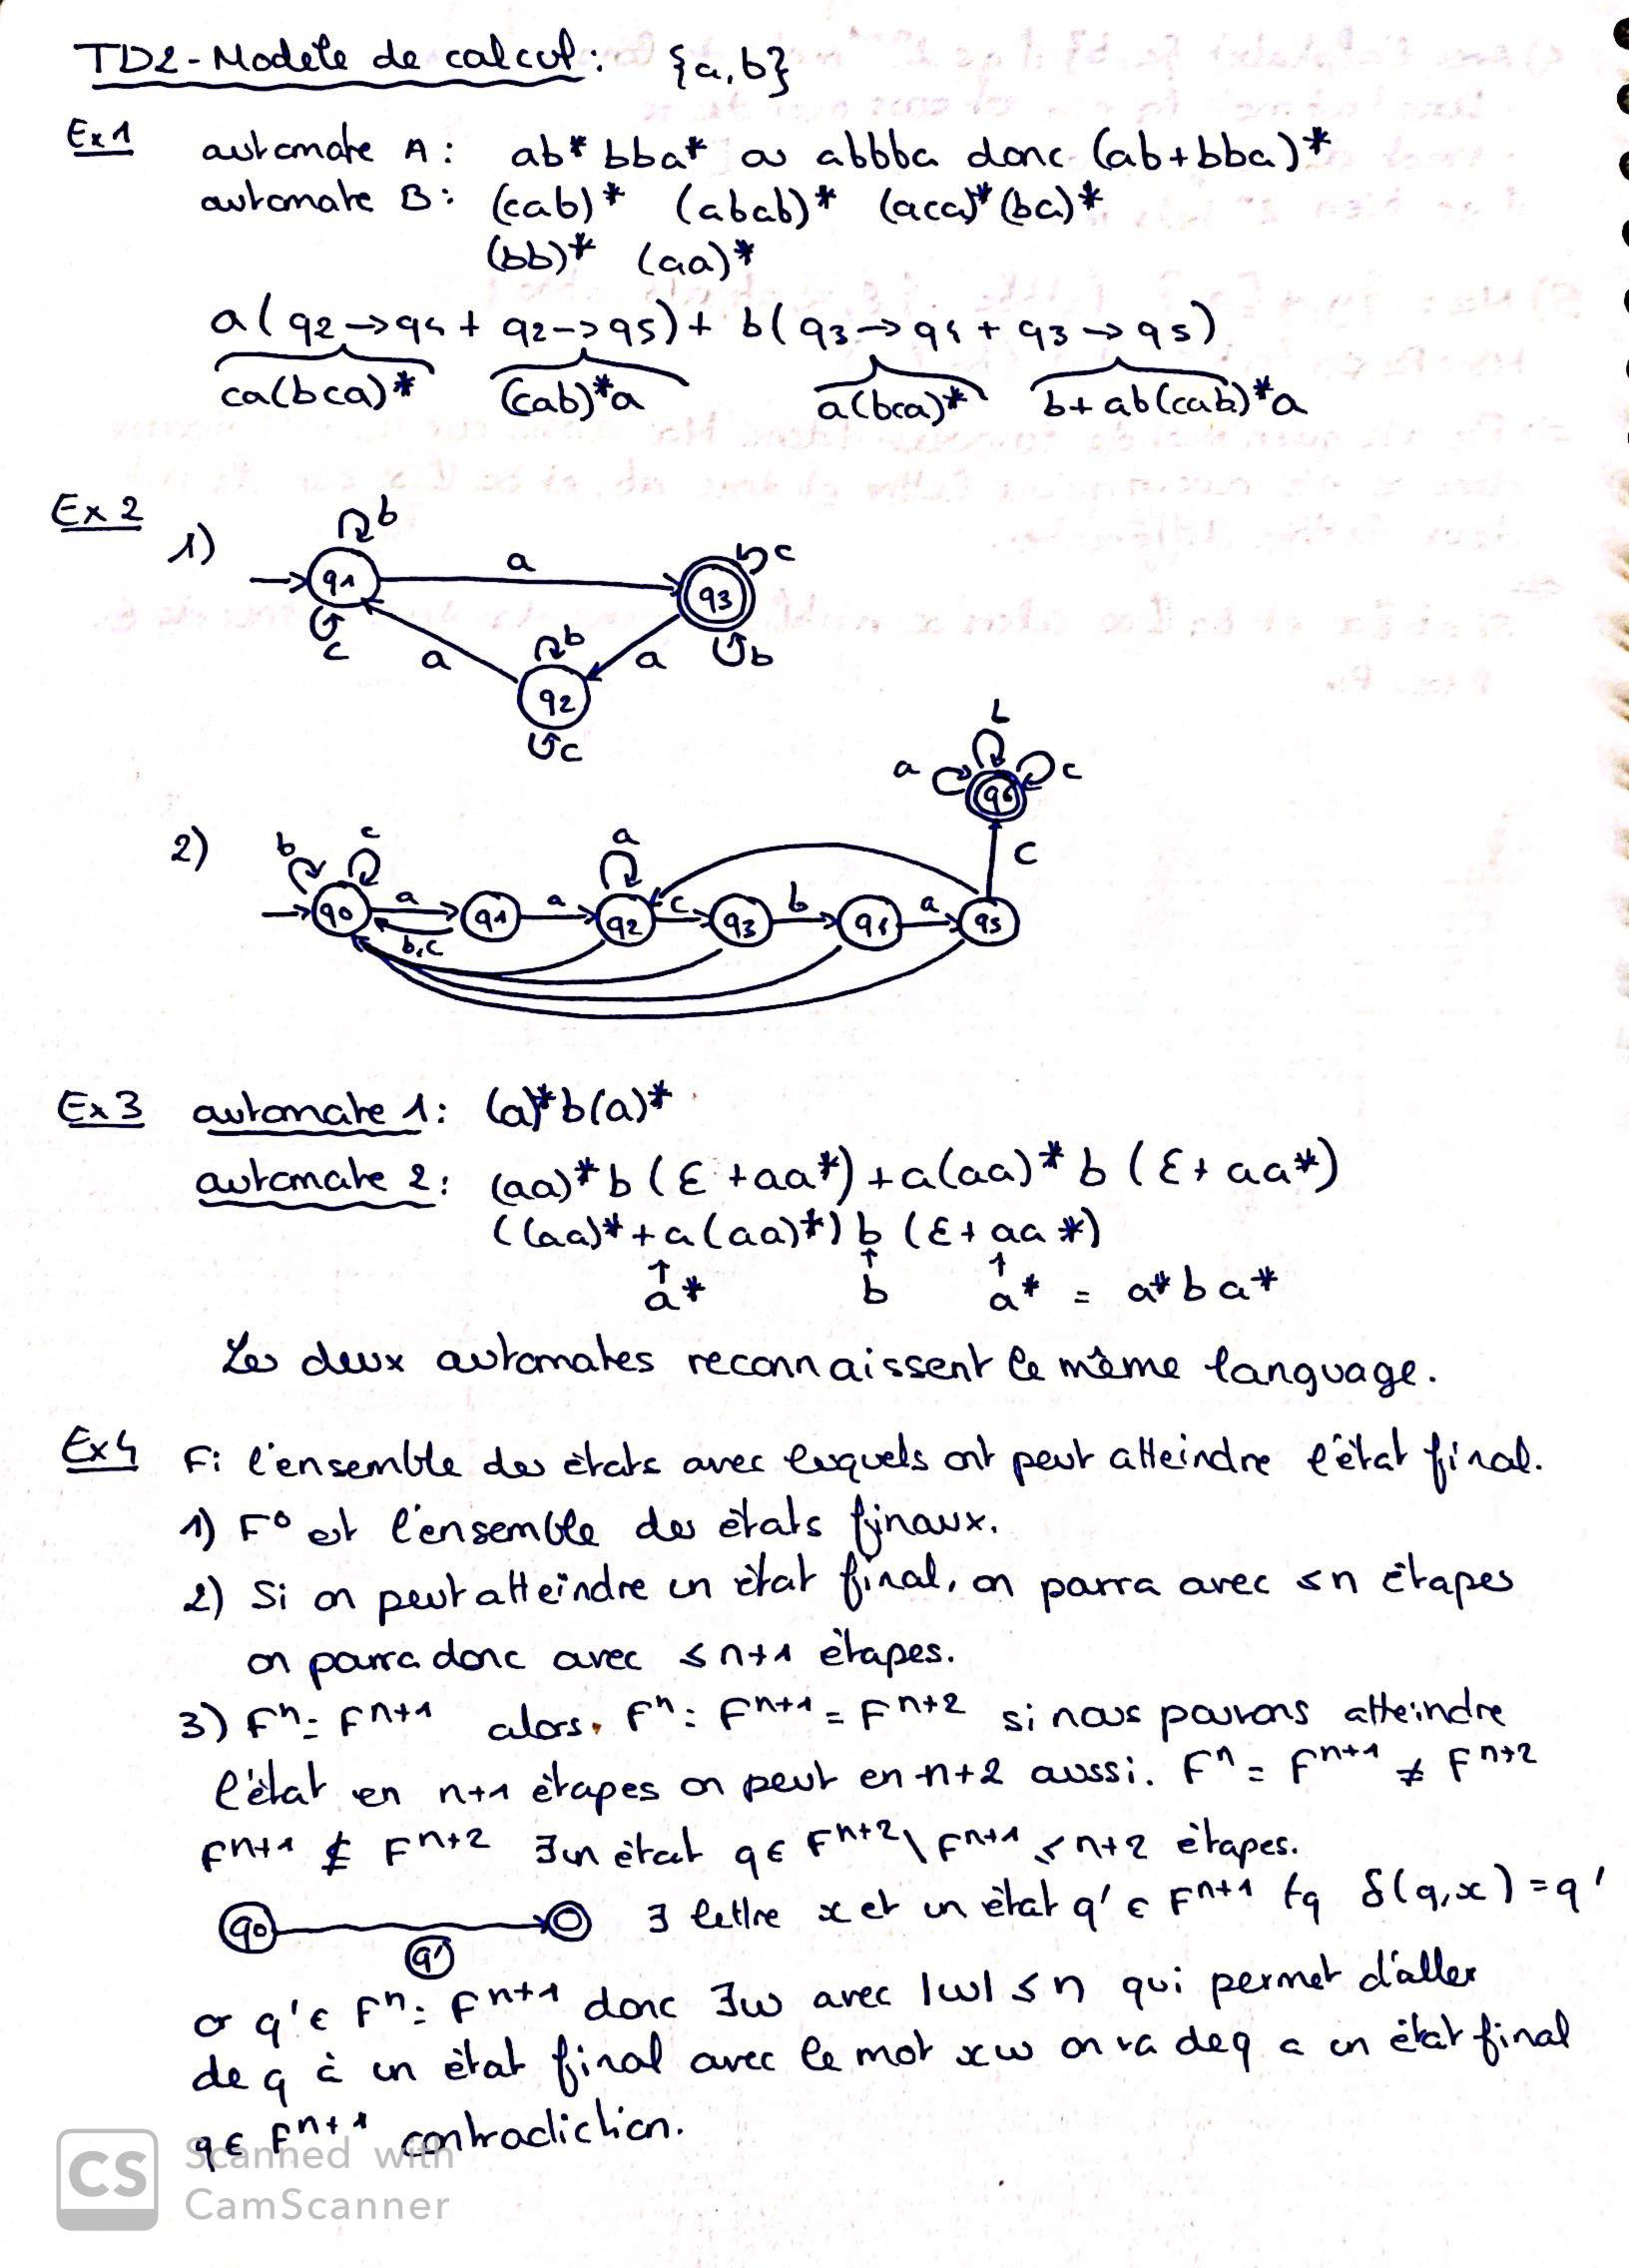 TD2-Modèle de calcul: {a,b}
Ex1 automate A: ab* bba* ou abbba donc (ab+bba)*
automate B: (cab)* (abab)* (aca)* (ba)*
(bb)* (aa)*
a(q2→q4 + q2→q5) + b(q3→q4 + q3→q5)
ca(bca)* (cab)*a a(bca)* b+ab(cab)*a
Ex2
1)
b
a
c
q1
q3
c
a
b
a
b
q2
c
2)
b
c
a
b
c
q6
c
a
q0
a
q1
a
q2
c
q3
b
q4
a
q5
b,c
Ex3 automate 1: (a)*b(a)*
automate 2: (aa)*b(ε+aa*)+a(aa)*b(ε+aa*)
((aa)*+a(aa)*)b(ε+aa*)
a* b a* = a*ba*
Les deux automates reconnaissent le même language.
Ex4 Fi l'ensemble des états avec lesquels ont peut atteindre l'état final.
1) F⁰ est l'ensemble des états finaux.
2) Si on peut atteindre un état final, on pourra avec ≤n étapes
on pourra donc avec ≤n+1 étapes.
3) Fⁿ=Fⁿ⁺¹ alors. Fⁿ=Fⁿ⁺¹=Fⁿ⁺² si nous pouvons atteindre
l'état en n+1 étapes on peut en n+2 aussi. Fⁿ=Fⁿ⁺¹≠Fⁿ⁺²
Fⁿ⁺¹ ⊈ Fⁿ⁺² ∃un état q∈Fⁿ⁺²\Fⁿ⁺¹ ≤n+2 étapes.
q0 q' ∃ lettre x et un état q'∈Fⁿ⁺¹ tq δ(q,x)=q'
or q'∈Fⁿ=Fⁿ⁺¹ donc ∃w avec |w|≤n qui permet d'aller
de q à un état final avec le mot xw on va de q a un état final
q∈Fⁿ⁺¹ contradiction.
CS Scanned with
CamScanner